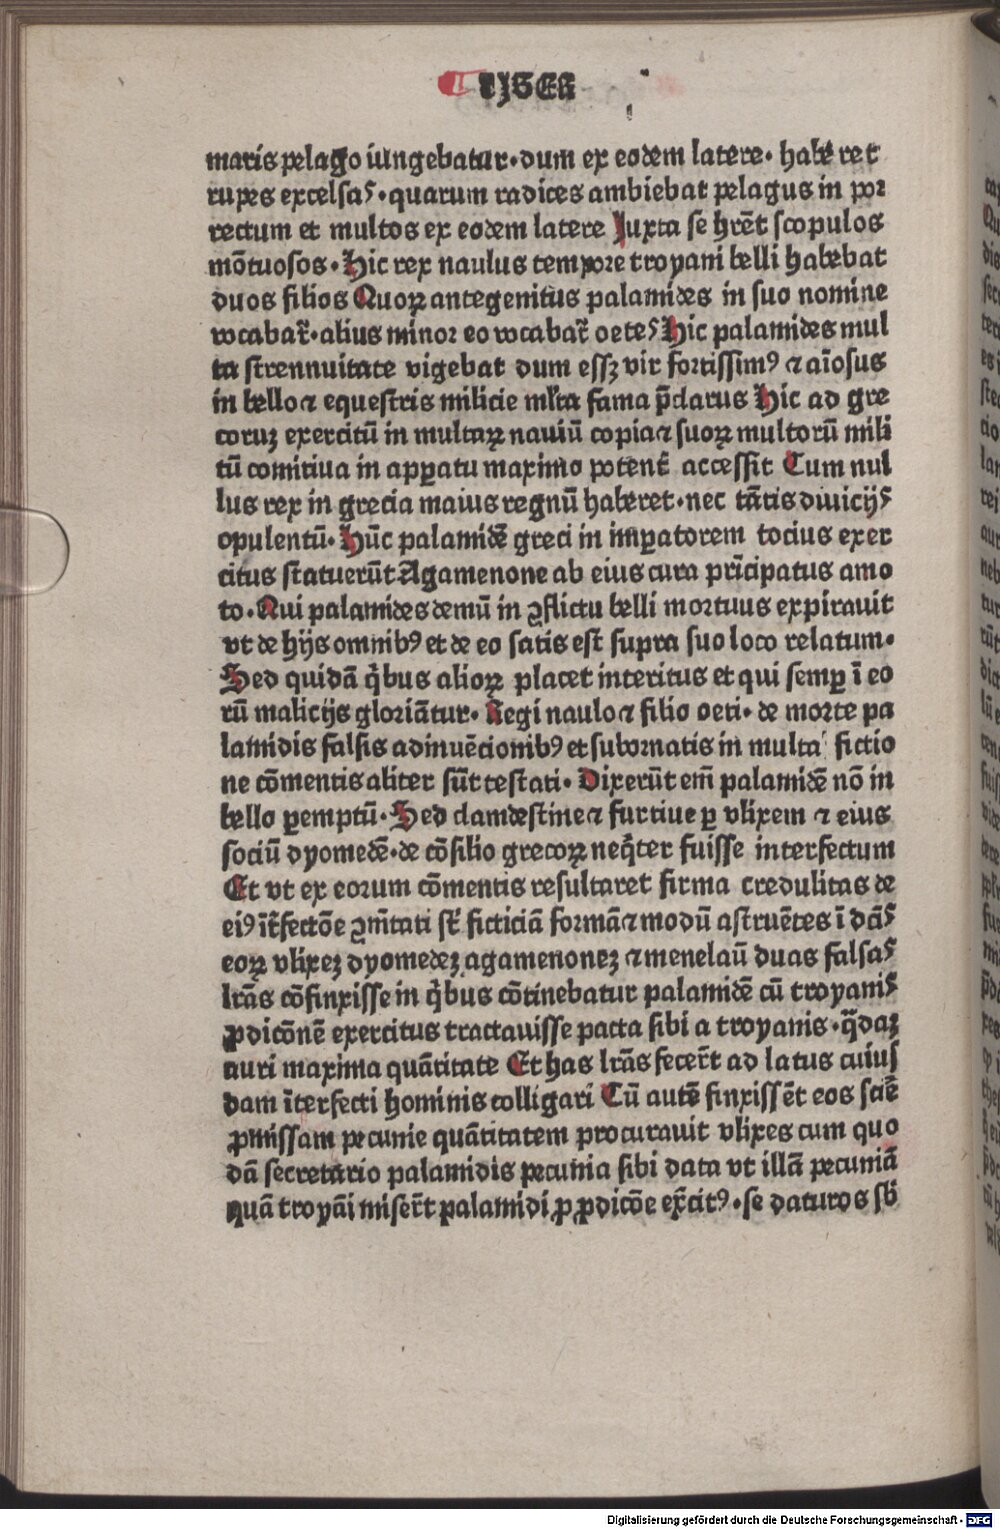 LIBER
maris pelago iungebatur·dum ex eodem latere· habe ret
rupes excelsas·quarum radices ambiebat pelagus in por
rectum et multos ex eodem latere Juxta se hrēt scopulos
mōtuosos·Hic rex naulus tempore troyani belli habebat
duos filios Quorꝝ antegenitus palamides in suo nomine
vocabat᷑·alius minor eo vocabat᷑ oetes Hic palamides mul
ta strennuitate vigebat dum essꝫ vir fortissimꝰ ⁊ aīosus
in bello ⁊ equestris milicie mĺta fama p̄clarus Hic ad gre
coruꝫ exercitū in multaꝝ nauiū copia ⁊ suoꝝ multorū mili
tū comitiua in apꝑatu maximo potent᷑ accessit Cum nul
lus rex in grecia maius regnū haberet·nec tātis diuicijs
opulentū·Hūc palamidē greci in imꝑatorem tocius exer
citus statuerūt Agamenone ab eius cura prīcipatus amo
to·Qui palamides demū in ꝯflictu belli mortuus expirauit
vt de hijs omnibꝰ et de eo satis est supra suo loco relatum·
Sed quidā q̇bus alioꝝ placet interitus et qui semꝑ ī eo
rū malicijs gloriātur·Regi naulo ⁊ filio oeti·de morte pa
lamidis falsis adinuēcionibꝰ et subornatis in multa fictio
ne cōmentis aliter sūt testati·Dixerūt em̄ palamidē nō in
bello ꝑemptū·Sed clamdestine ⁊ furtiue ꝑ vlixem ⁊ eius
sociū dyomedē·de cōsilio grecoꝝ neq̇ter fuisse interfectum
Et vt ex eorum cōmentis resultaret firma credulitas de
eiꝰ īt᷑fectōe ꝯm̄tati st᷑ ficticiā formā ⁊ modū astruētes ī dc̄s
eoꝝ vlixeꝫ dyomedeꝫ agamenoneꝫ ⁊ menelaū duas falsas
lr̄as cōfinxisse in q̇bus cōtinebatur palamidē cū troyanis
ꝓdicōnē exercitus tractauisse pacta sibi a troyanis·q̄daꝫ
auri maxima quātitate Et has lr̄as fecer̄t ad latus cuius
dam īterfecti hominis colligari Cū autē finxissēt eos sciē
ꝓmissam pecunie quātitatem procurauit vlixes cum quo
dā secretario palamidis pecunia sibi data vt illā pecuniā
quā troyāi miser̄t palamidi ꝓ ꝓdicōe ex̄citꝰ·se daturos sb̄
Digitalisierung gefördert durch die Deutsche Forschungsgemeinschaft - DFG